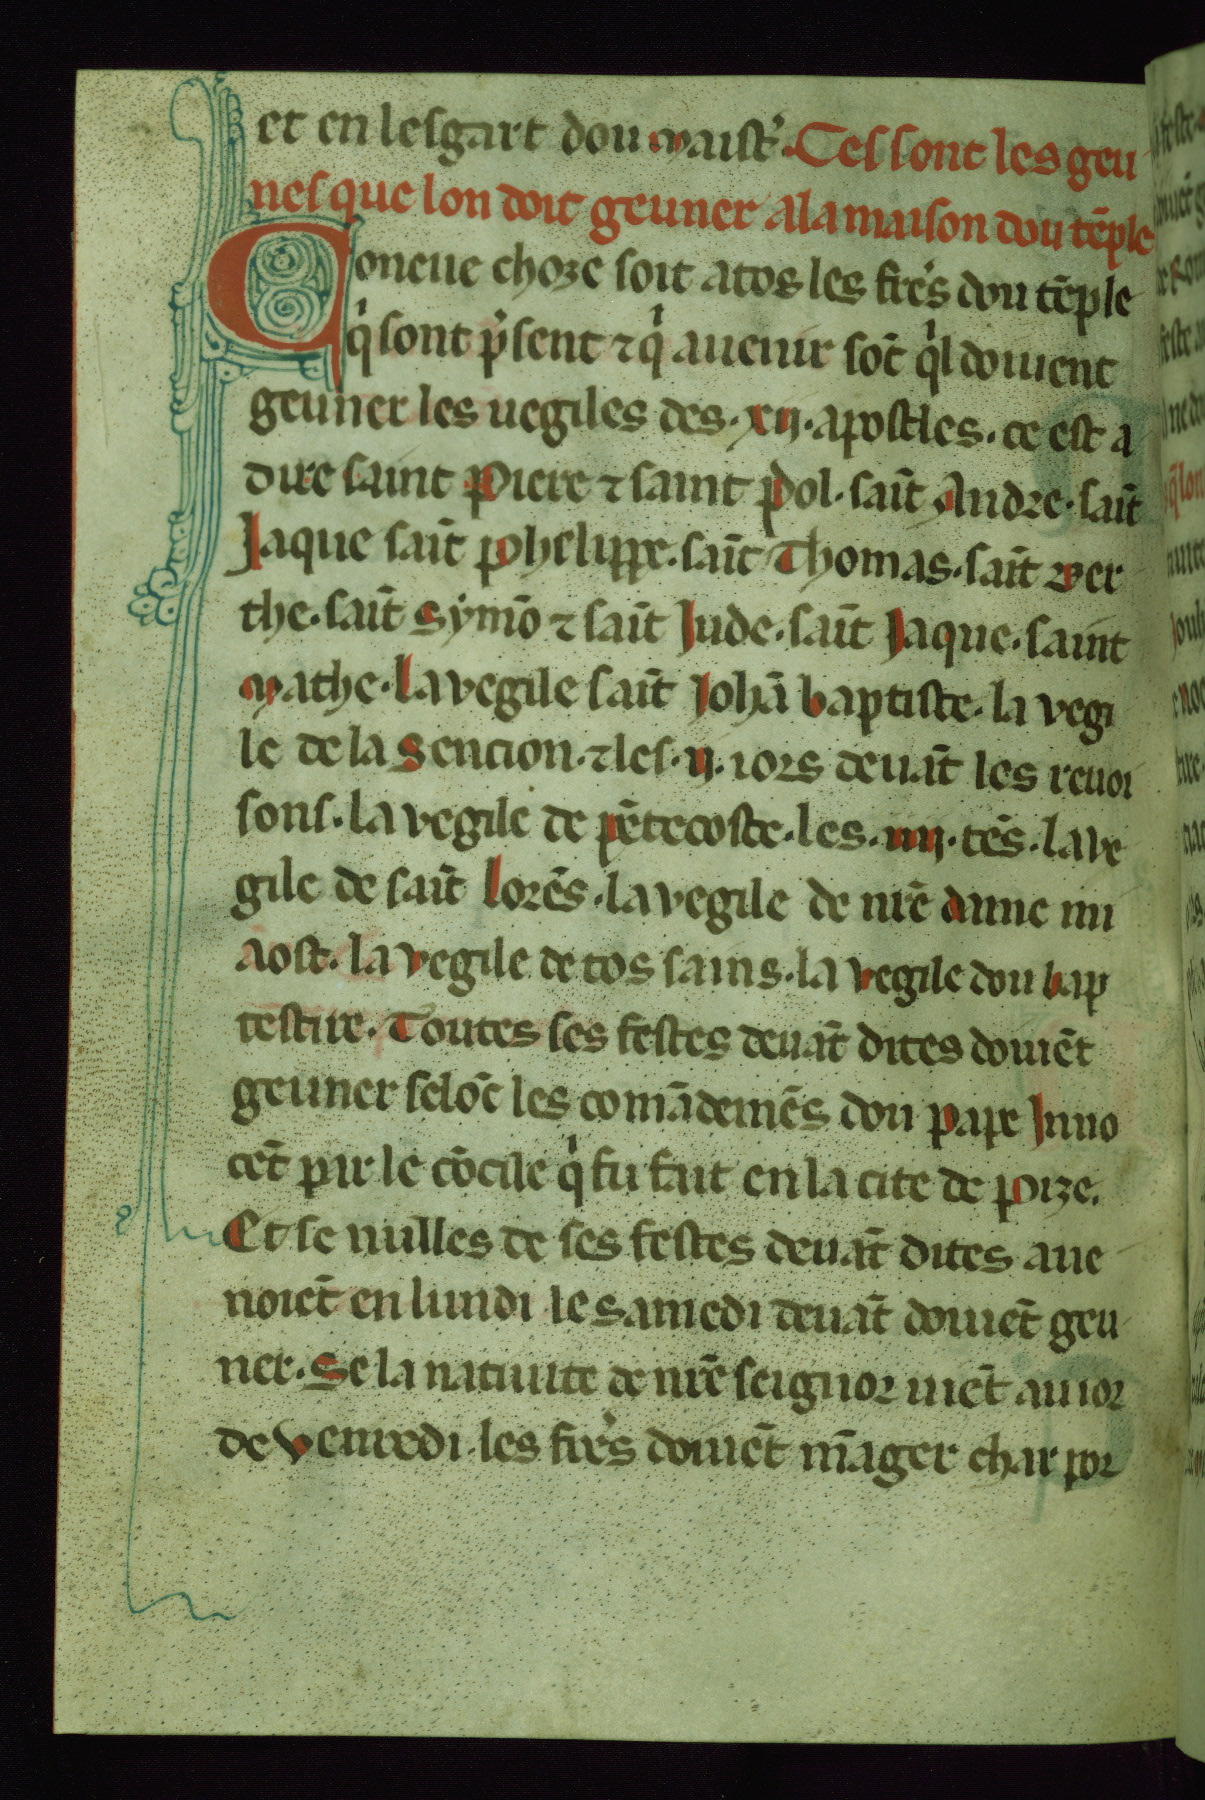 et en lesgart dou maist᷒. Ces sont les geu
nes que lon doit geuner a la maison dou tẽple
Coneue choze soit a tos les fre᷒s dou tẽple
qͥ sont p᷒sent ⁊ qͥ a uenir sõt qͥl doiuent
geuner les uegiles des .xij. apostles. ce est a
dire saint Piere ⁊ saint Pol. saĩt Andre. saĩt
Jaque saĩt Phelippe. saĩt Thomas. saĩt Ber
the. saĩt Symõ ⁊ saĩt Jude. saĩt Jaque. saint
Mathe. La vegile saĩt Johã baptiste. la vegi
le de la Sencion. ⁊ les .ij. iors deuãt les reuoi
sons. la vegile de pẽtecoste. les .iiij. tẽs. la ve
gile de saĩt Lorẽs. la vegile de nr̃e dame mi
Aost. la vegile de tos sains. la vegile dou bap
testire. Toutes ses festes deuãt dites doiuẽt
geuner selõc les comãdemẽs dou pape Inno
cẽt par le cõcile qͥ fu fait en la cite de pize.
Et se nulles de ses festes deuãt dites aue
noiẽt en lundi le samedi deuãt doiuẽt geu
ner. Se la natiuite de nr̃e seignor uiẽt au ior
de Venredi. les fre᷒s doiuẽt mãger char por